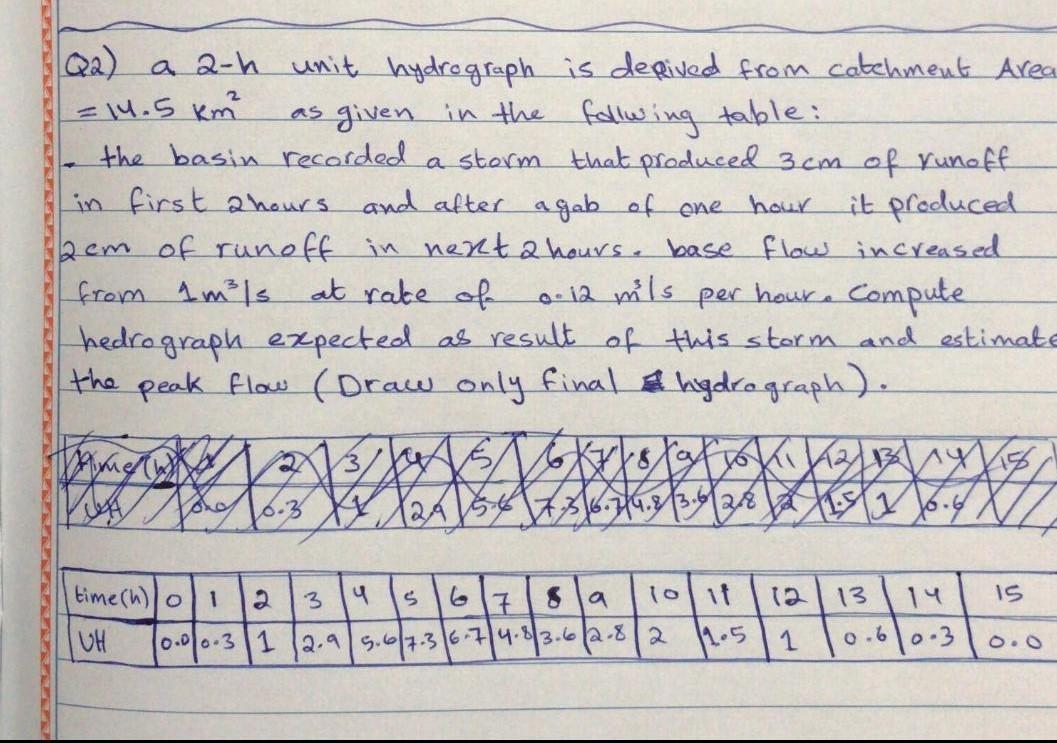 Q2) a 2-h unit hydrograph is derived from catchment Area
= 14.5 km² as given in the follwing table:
- the basin recorded a storm that produced 3cm of runoff
in first 2hours and after a gab of one hour it produced
2cm of runoff in next 2hours. base flow increased
from 1m³/s at rate of 0.12 m³/s per hour. Compute
hedrograph expected as result of this storm and estimate
the peak flow (Draw only final hydrograph).
time(h) 2 3 4 5 6 7 8 9 10 11 12 13 14 15
UH 0.0 0.3 1 2.9 5.6 7.3 6.7 4.8 3.6 2.8 2 1.5 1 0.6
time(h) 0 1 2 3 4 5 6 7 8 9 10 11 12 13 14 15
UH 0.0 0.3 1 2.9 5.6 7.3 6.7 4.8 3.6 2.8 2 1.5 1 0.6 0.3 0.0